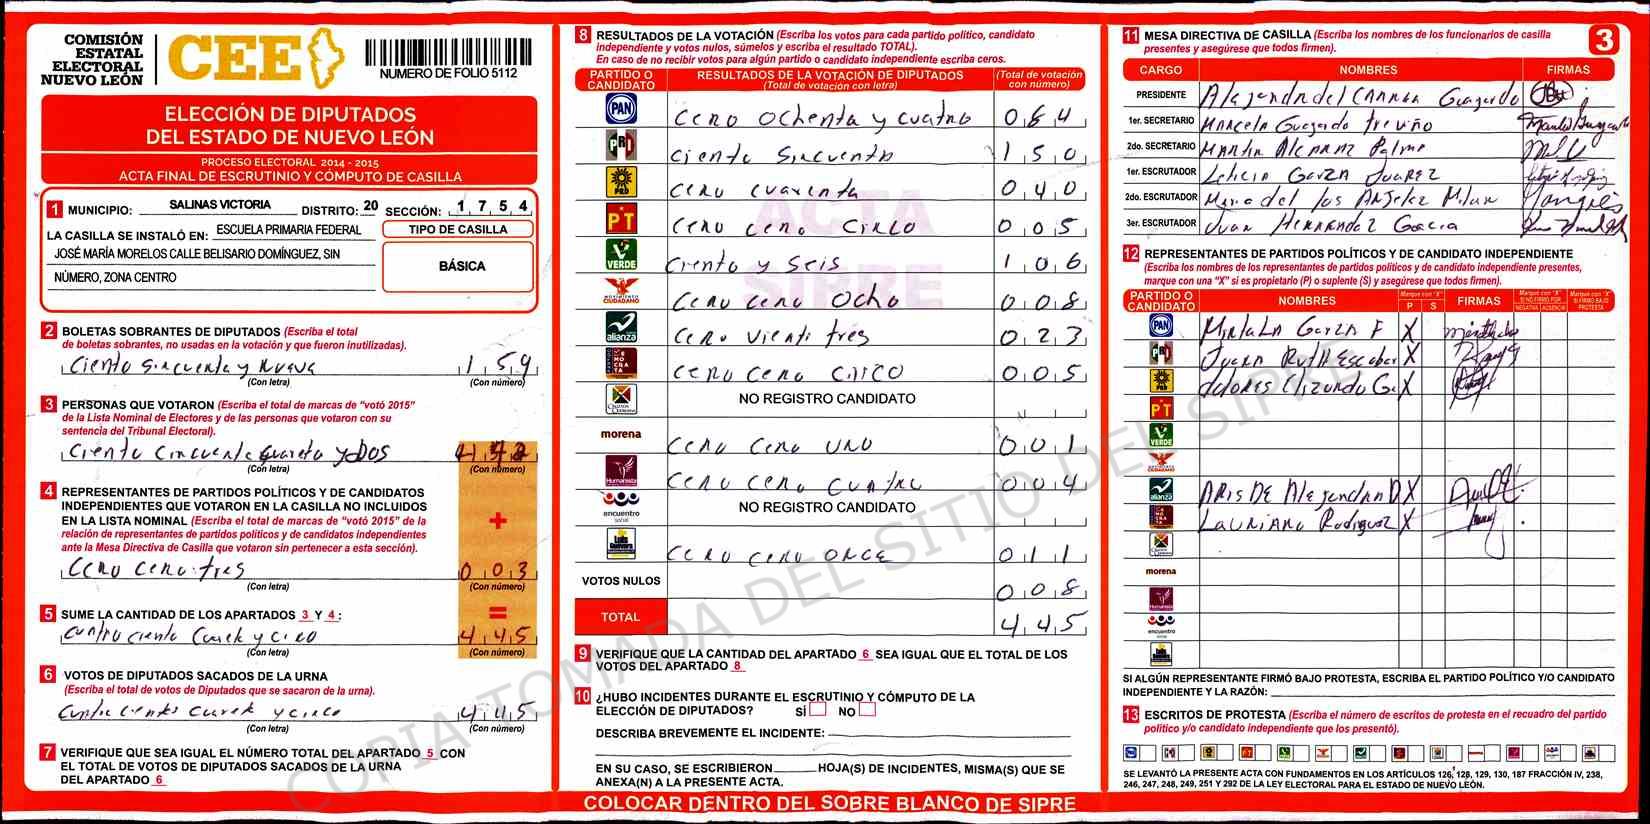 COMISIÓN
ESTATAL
ELECTORAL
NUEVO LEÓN
CEE
NUMERO DE FOLIO 5112
ELECCIÓN DE DIPUTADOS
DEL ESTADO DE NUEVO LEÓN
PROCESO ELECTORAL 2014 - 2015
ACTA FINAL DE ESCRUTINIO Y CÓMPUTO DE CASILLA
1 MUNICIPIO: SALINAS VICTORIA DISTRITO: 20 SECCIÓN: 1 7 5 4
LA CASILLA SE INSTALÓ EN: ESCUELA PRIMARIA FEDERAL
JOSÉ MARÍA MORELOS CALLE BELISARIO DOMÍNGUEZ, SIN
NÚMERO, ZONA CENTRO
TIPO DE CASILLA
BÁSICA
2 BOLETAS SOBRANTES DE DIPUTADOS (Escriba el total
de boletas sobrantes, no usadas en la votación y que fueron inutilizadas).
Ciento sincuenta y nueva 1 5 9
(Con letra) (Con número)
3 PERSONAS QUE VOTARON (Escriba el total de marcas de "votó 2015"
de la Lista Nominal de Electores y de las personas que votaron con su
sentencia del Tribunal Electoral).
Ciento cincuenta y dos
(Con letra) (Con número)
4 REPRESENTANTES DE PARTIDOS POLÍTICOS Y DE CANDIDATOS
INDEPENDIENTES QUE VOTARON EN LA CASILLA NO INCLUIDOS
EN LA LISTA NOMINAL (Escriba el total de marcas de "votó 2015" de la
relación de representantes de partidos políticos y de candidatos independientes
ante la Mesa Directiva de Casilla que votaron sin pertenecer a esta sección).
+
Cero cero tres 0 0 3
(Con letra) (Con número)
5 SUME LA CANTIDAD DE LOS APARTADOS 3 Y 4: =
4 4 5
(Con letra) (Con número)
6 VOTOS DE DIPUTADOS SACADOS DE LA URNA
(Escriba el total de votos de Diputados que se sacaron de la urna).
4 4 5
(Con letra) (Con número)
7 VERIFIQUE QUE SEA IGUAL EL NÚMERO TOTAL DEL APARTADO 5 CON
EL TOTAL DE VOTOS DE DIPUTADOS SACADOS DE LA URNA
DEL APARTADO 6
8 RESULTADOS DE LA VOTACIÓN (Escriba los votos para cada partido político, candidato
independiente y votos nulos, súmelos y escriba el resultado TOTAL).
En caso de no recibir votos para algún partido o candidato independiente escriba ceros.
PARTIDO O CANDIDATO RESULTADOS DE LA VOTACIÓN DE DIPUTADOS (Total de votación con letra) (Total de votación con número)
PAN Cero ochenta y cuatro 0 8 4
PRI ciento sincuenta 1 5 0
PRD Cero cuarenta 0 4 0
PT Cero cero cinco 0 0 5
VERDE ciento y seis 1 0 6
MOVIMIENTO CIUDADANO Cero cero ocho 0 0 8
alianza Cero vienti tres 0 2 3
DEMOCRATA Cero cero cinco 0 0 5
CRUZADA CIUDADANA NO REGISTRO CANDIDATO
morena Cero cero uno 0 0 1
Humanista Cero cero cuatro 0 0 4
encuentro social NO REGISTRO CANDIDATO
Luis Guevara Cero cero once 0 1 1
VOTOS NULOS 0 0 8
TOTAL 4 4 5
ACTA
SIPRE
9 VERIFIQUE QUE LA CANTIDAD DEL APARTADO 6 SEA IGUAL QUE EL TOTAL DE LOS
VOTOS DEL APARTADO 8
10 ¿HUBO INCIDENTES DURANTE EL ESCRUTINIO Y CÓMPUTO DE LA
ELECCIÓN DE DIPUTADOS? SÍ NO
DESCRIBA BREVEMENTE EL INCIDENTE:
EN SU CASO, SE ESCRIBIERON HOJA(S) DE INCIDENTES, MISMA(S) QUE SE
ANEXA(N) A LA PRESENTE ACTA.
COLOCAR DENTRO DEL SOBRE BLANCO DE SIPRE
11 MESA DIRECTIVA DE CASILLA (Escriba los nombres de los funcionarios de casilla
presentes y asegúrese que todos firmen).
3
CARGO NOMBRES FIRMAS
PRESIDENTE Alejandra del Carmen Guajardo
1er. SECRETARIO Marcela Guajardo treviño
2do. SECRETARIO Martha Alcaraz Palma
1er. ESCRUTADOR Leticia Garza Juarez
2do. ESCRUTADOR Maria del los Angeles Milan
3er. ESCRUTADOR Juan Hernandez Garcia
12 REPRESENTANTES DE PARTIDOS POLÍTICOS Y DE CANDIDATO INDEPENDIENTE
(Escriba los nombres de los representantes de partidos políticos y de candidato independiente presentes,
marque con una "X" si es propietario (P) o suplente (S) y asegúrese que todos firmen).
PARTIDO O CANDIDATO NOMBRES Marque con "X" P S FIRMAS Marque con "X" SI NO FIRMÓ POR: NEGATIVA AUSENCIA Marque con "X" SI FIRMÓ BAJO PROTESTA
PAN Mirtala Garza F X
PRI Juana Ruth Escobar X
PRD dolores Elizondo X
PT
VERDE
MOVIMIENTO CIUDADANO
alianza X
DEMOCRATA Lauriano Rodriguez X
morena
Humanista
encuentro social
Luis Guevara
SI ALGÚN REPRESENTANTE FIRMÓ BAJO PROTESTA, ESCRIBA EL PARTIDO POLÍTICO Y/O CANDIDATO
INDEPENDIENTE Y LA RAZÓN:
13 ESCRITOS DE PROTESTA (Escriba el número de escritos de protesta en el recuadro del partido
político y/o candidato independiente que los presentó).
SE LEVANTÓ LA PRESENTE ACTA CON FUNDAMENTOS EN LOS ARTÍCULOS 126, 128, 129, 130, 187 FRACCIÓN IV, 238,
246, 247, 248, 249, 251 Y 292 DE LA LEY ELECTORAL PARA EL ESTADO DE NUEVO LEÓN.
COPIA TOMADA DEL SITIO DEL SIPRE